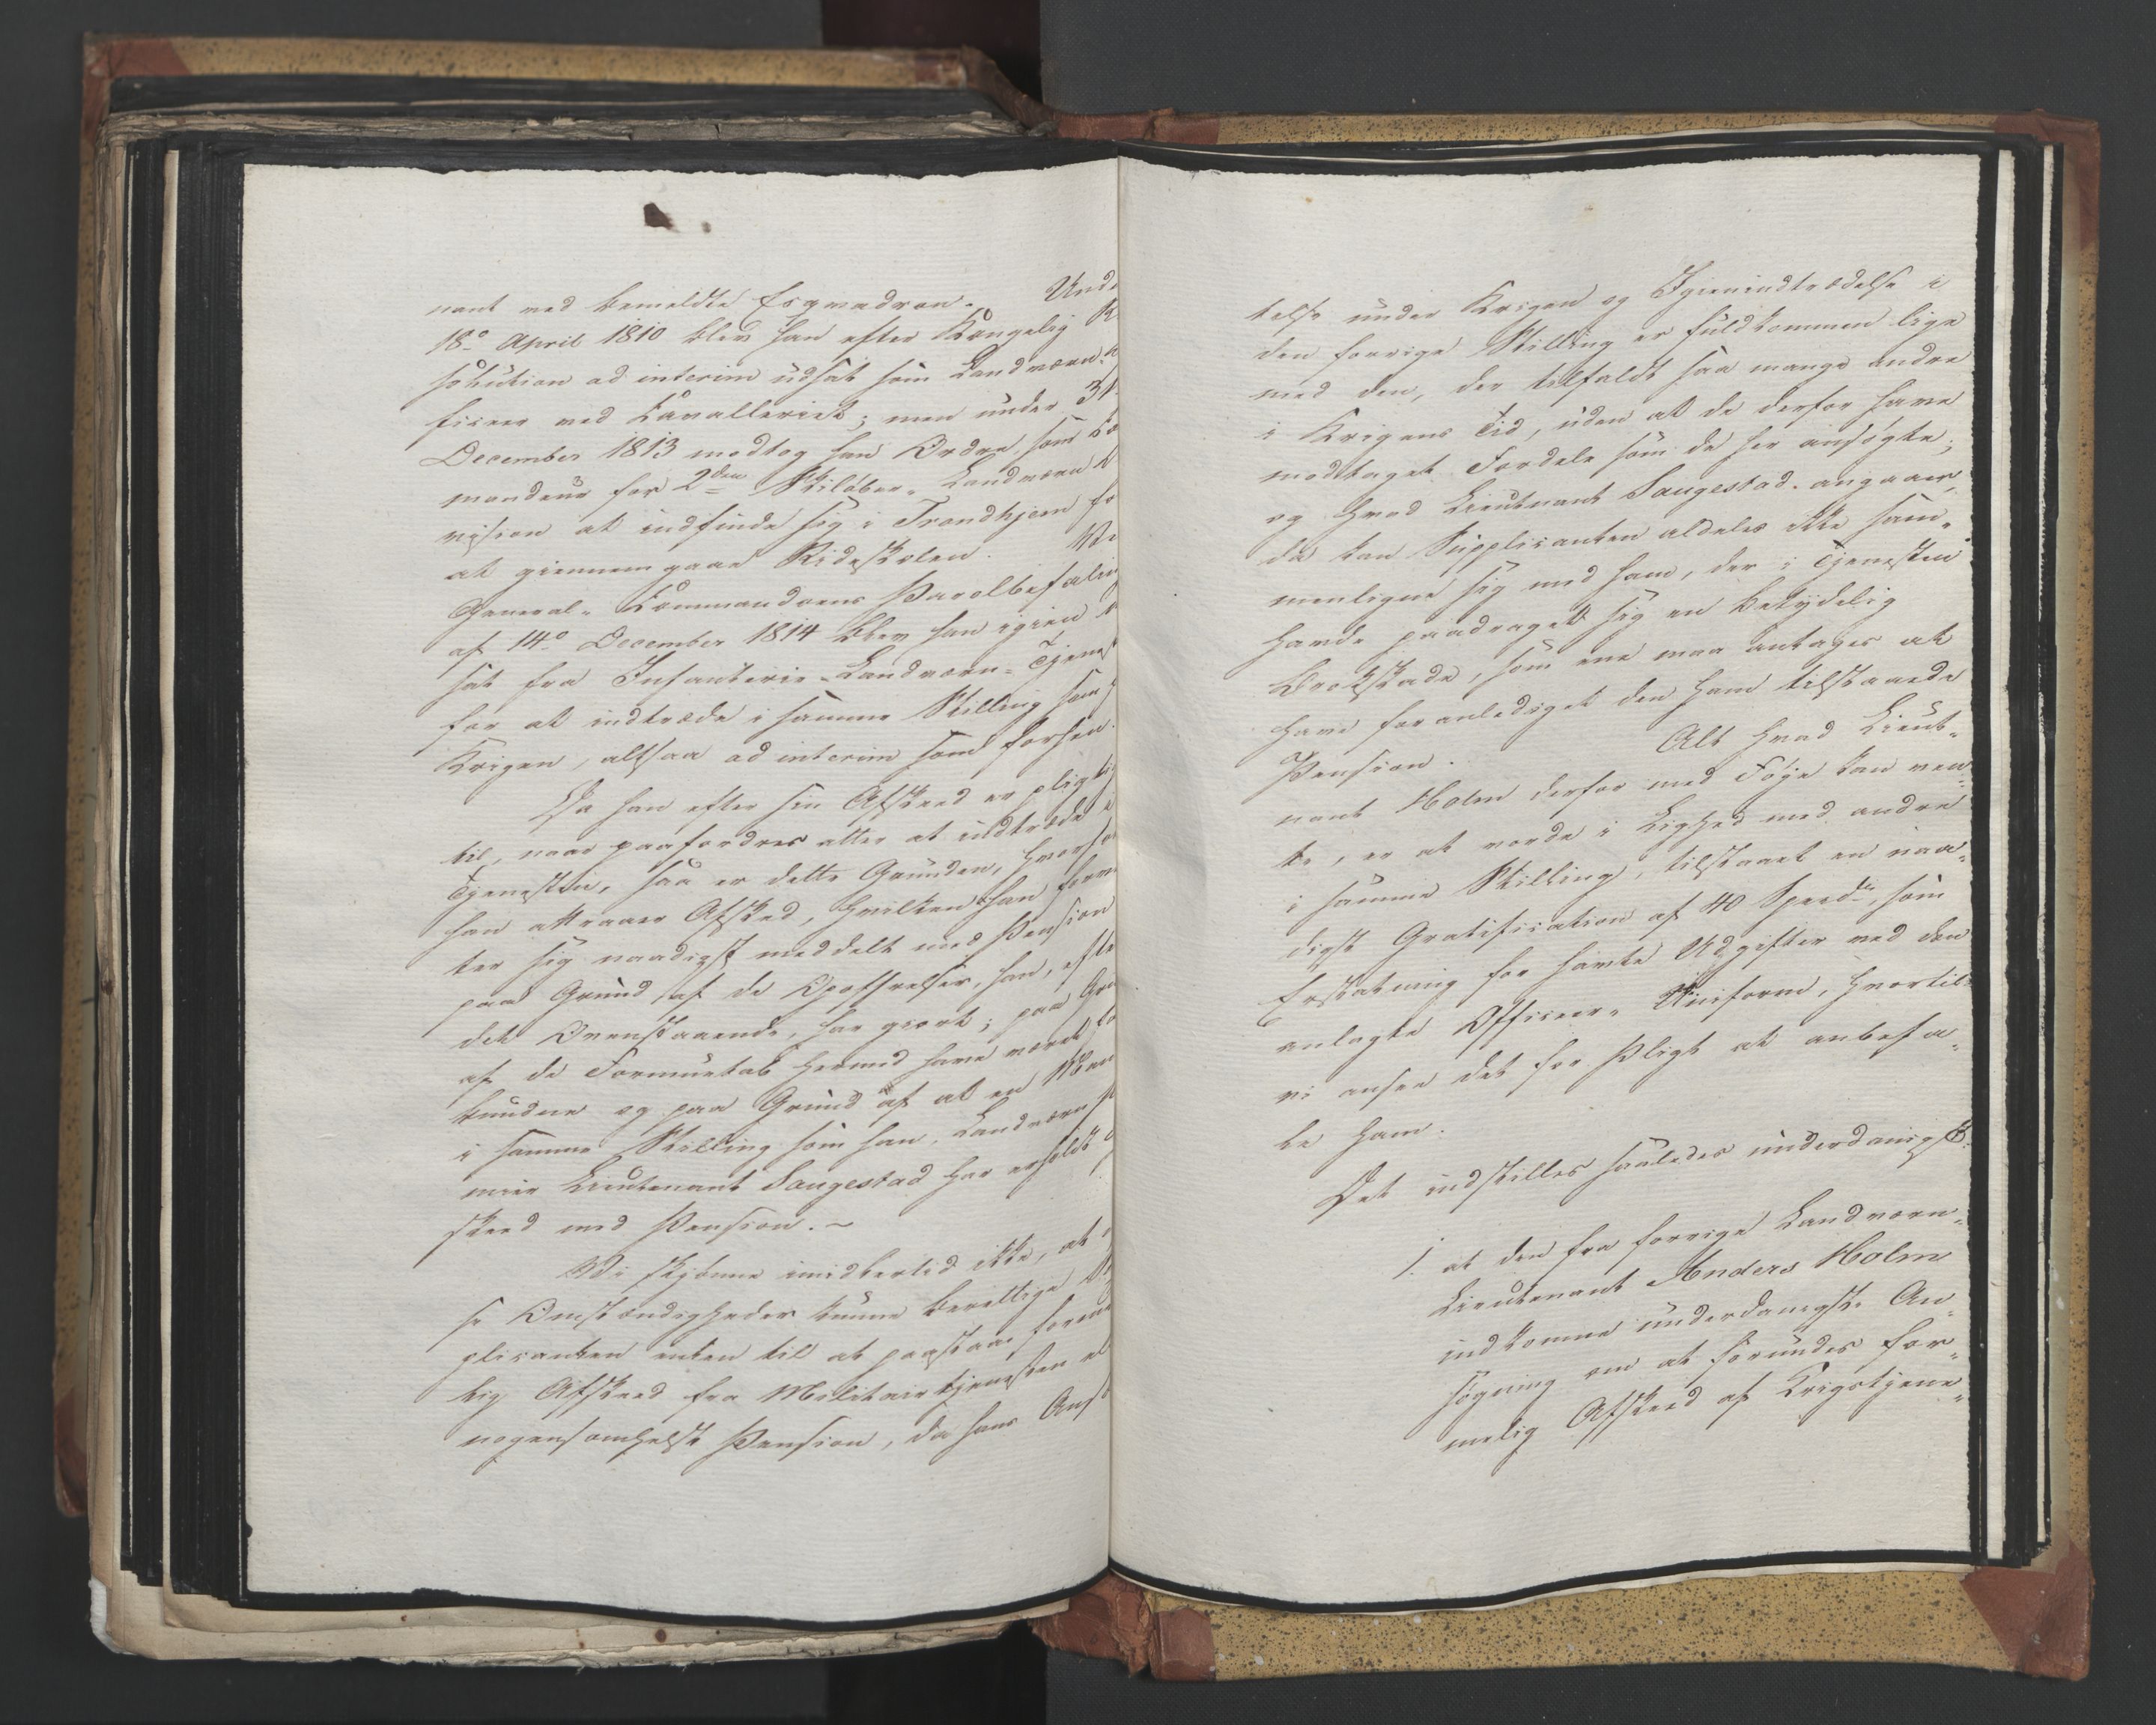 nant ved bemeldte Esqvadron. Unde
18de April 1810 blev han efter Kongelig R
solution ad interim udsat som Landværn-
ficeer ved Cavalleriet; men under 31
December 1813 modtog han Ordre, som
mandeur for 2den Skiløber-Landværn D
vision at indfinde sig i Trondhjem fo
at giennemgaae Rideskolen. Ve
General-Commandoens Parolbefalin
af 14de December 1814 blev han igien
sat fra Infanterie-Landværn-Tjenest
for at indtræde i samme Stilling som
Krigen, altsaa ad interim som forhen.
Da han efter sin Afskeed er pligtig
til, naar paafordres atter at indtræde i
Tjenesten, saa er dette Grunden, hvorfor
han attraaer Afsked, hvilken han form
ter sig naadigst meddelt med Pension
paa Grund af de Opoffrelser, han, efte
det Ovenstaaende, har giort; paa Gru
af de Formuetab hermed have været fo
bundne og paa Grund af at en Man
i samme Stilling som han, Landværn P
mier Lieutenant Saugestad har erholdt
skeed med Pension. ~
Vi skjønne imidlertid ikke, at
se Omstændigheder kunne berettige
plicanten enten til at paastaae
lig Afskeed fra Militairtjenesten el
nogensomhelst Pension, da hans Ans
telse under Krigen og Igienindtrædelse i
den forrige Stilling er fuldkommen lige
med den, der tilfaldt saa mange andre
i Krigens Tid, uden at de derfor have
modtaget Fordele som de her ansøgte;
og hvad Lieutnant Saugestad angaaer,
da kan Supplicanten aldeles ikke sam-
menligne sig med ham, der i Tjenesten
havde paadraget sig en betydelig
Brokskade, som ene maa antages at
have foranlediget den ham tilstaaede
Pension. Alt hvad Lieut-
nant Holm derfor med Føje kan ven-
te, er at vorde i Lighed med andre
i samme Stilling, tilstaaet en naa-
digst Gratification af 40 Specd., som
Erstatning for havte Udgifter ved den
anlagte Officeer-Uniform, hvortil
vi ansee det for Pligt at anbefa-
le ham.
Det indstilles saaledes underdanigst:
1. at den fra forrige Landværn-
Lieutenant Anders Holm
indkomne underdanigste An-
søgning om at forundes for-
melig Afskeed af Krigstjene-